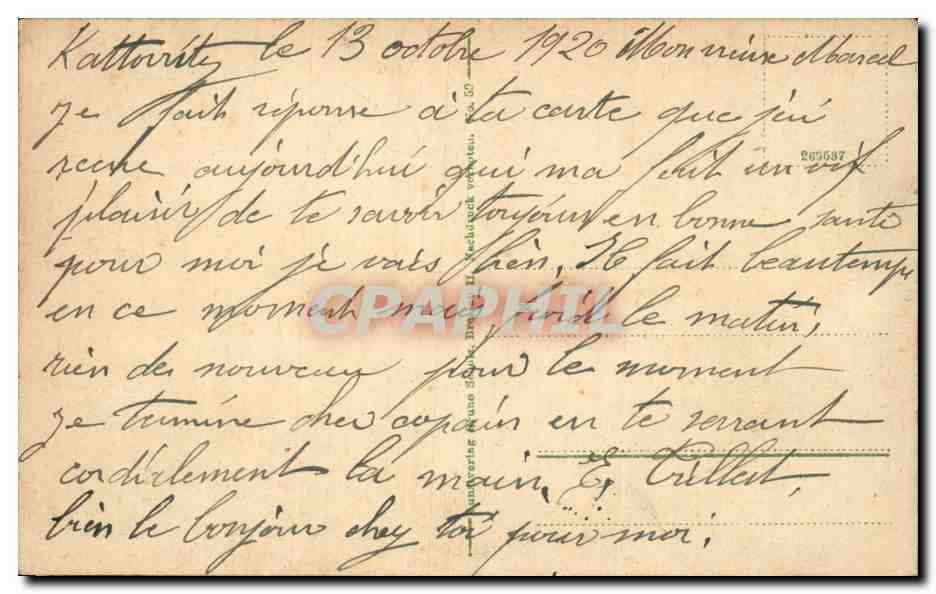 Kattovitz le 13 octobre 1920 Mon vieux Marcel
je fait réponse à ta carte que j'ai
265537
recue aujourd'hui qui ma fait un vif
plaisir de te savoir toujour en bonne santé
pour moi je vais bien. Il fait beautemps
en ce moment mais froid le matin,
rien de nouveau pour le moment
je termine cher copain en te serrant
cordialement la main. E,
bien le bonjour chez toi pour moi.
Nachdruck verboten. No. 59
CPAPHIL